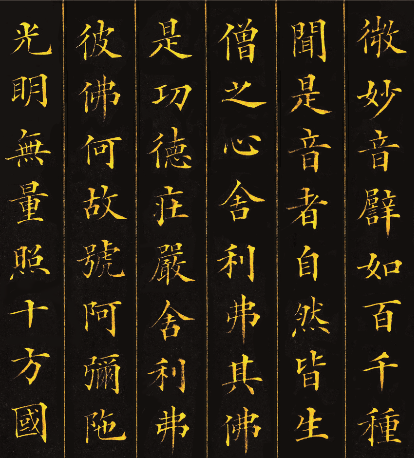 微妙音譬如百千種
聞是音者自然皆生
僧之心舍利弗其佛
是功德庄嚴舍利弗
彼佛何故號阿彌陁
光明無量照十方國